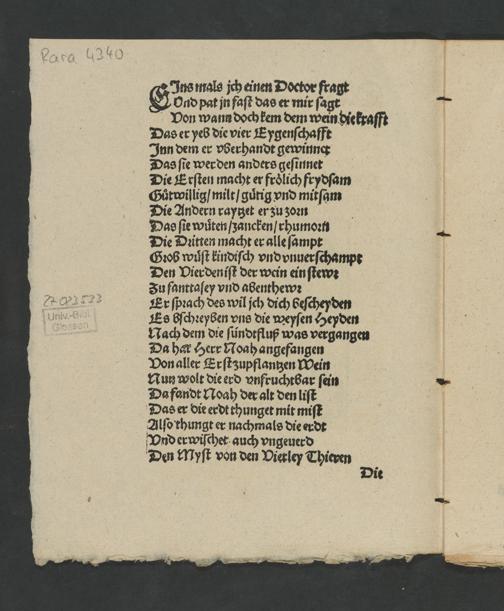 Rara 4340
EIns mals jch einen Doctor fragt
Vnd pat jn fast das er mir sagt
Von wann doch kem dem wein die krafft
Das er yeb die vier Eygenschafft
Jnn dem er vberhandt gewinnet
Das sie werden anders gesinnet
Die Ersten macht er frölich frydsam
Gütwillig/milt/gütig vnd mitsam
Die Andern raytzet er zu zorn
Das sie wüten/zancken/rhumorn
Die Dritten macht er alle sampt
Grob wüst kindisch vnd vnuerschampt
Den Vierden ist der wein ein stewr
Zu fanttasey vnd abenthewr
Er sprach des wil jch dich bescheyden
Es bschreyben vns die weysen Heyden
Nach dem die sündtfluß was vergangen
Da hat Herr Noah angefangen
Von aller Erst zupflantzen Wein
Nun wolt die erd vnfruchtbar sein
Da fandt Noah der alt den list
Das er die erdt thunget mit mist
Also thungt er nachmals die erdt
Vnd erwischet auch vngeuerd
Den Myst von den Vierley Thieren
Die
Univ.-Bibl.
Giessen